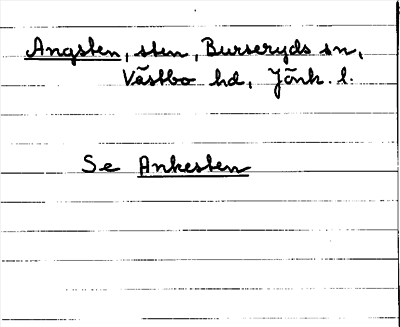 Angsten, sten, Burseryds sn,
Västbo hd, Jönk. l.
Se Ankesten